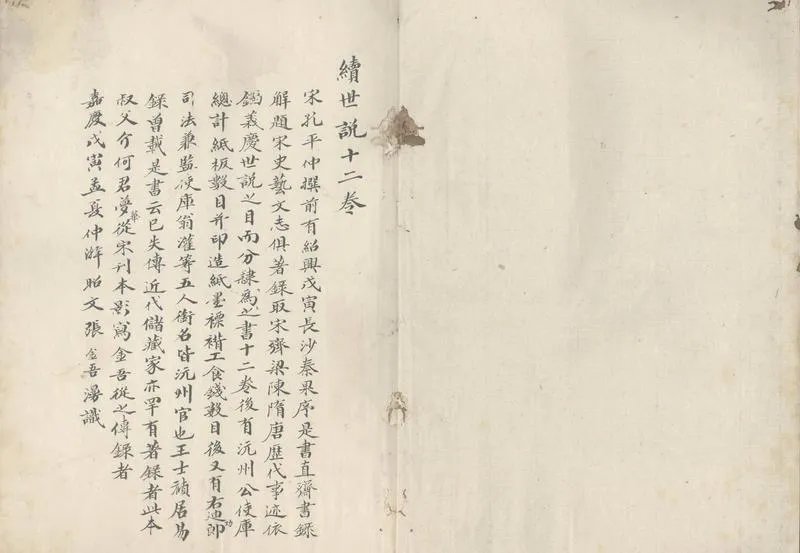 續世說十二卷
宋孔平仲撰前有紹興戊寅長沙秦果序是書直齋書錄
解題宋史藝文志俱著錄取宋齊梁陳隋唐歷代事迹依
義慶世說之目而分隸為之書十二卷後有沅州公使庫
總計紙板數目并印造紙墨褾褙工食錢數目後又有右迪功郎
司法兼監使庫翁灌等五人銜名皆沅州官也王士禎居易
錄曾載是書云已失傳近代儲藏家亦罕有著錄者此本
叔父介何君夢華從宋刊本影寫金吾從之傳錄者
嘉慶戊寅孟夏仲澣昭文張金吾漫識